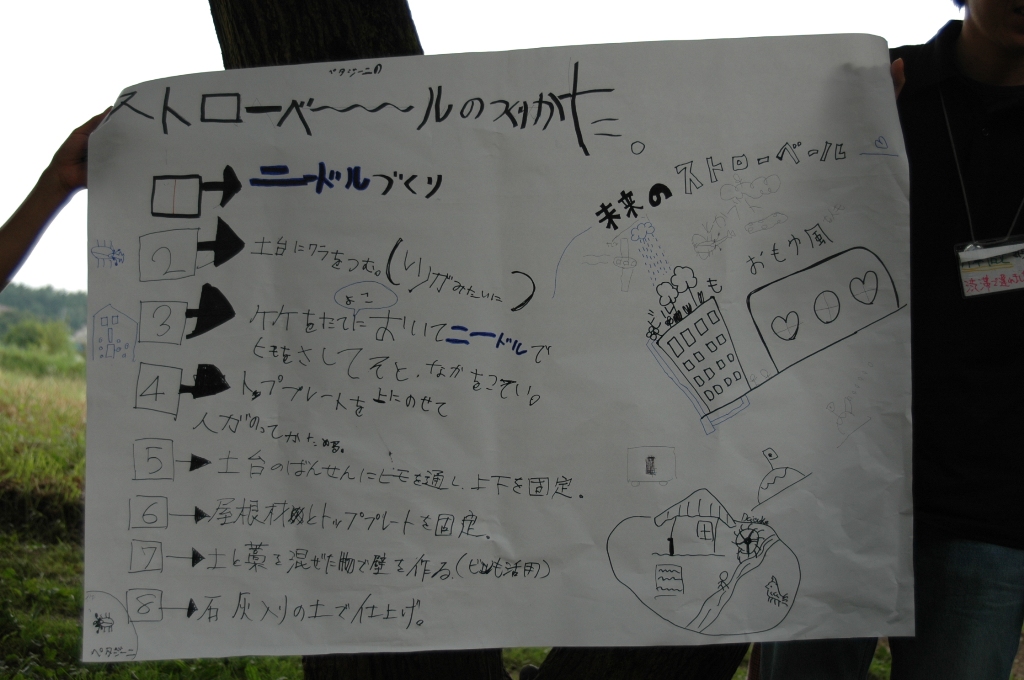 ベタジーニの
ストローベ〜〜〜ルの作りかた。
ニードルづくり
2 土台にワラをつむ。(いりがみたいに)
よこ
3 ケケをたてにおいてニードルで
ヒモをさしてそと、なかをこてい。
4 トッププレートを上にのせて
人がのってかためる。
5 土台のばんせんにヒモを通し、上下を固定。
6 屋根材とトッププレートを固定。
7 土と藁を混ぜた物で壁を作る。(ビンも活用)
8 石灰入りの土で仕上げ。
ベタジーニ
未来のストローベール
ビルも
おもゆ風